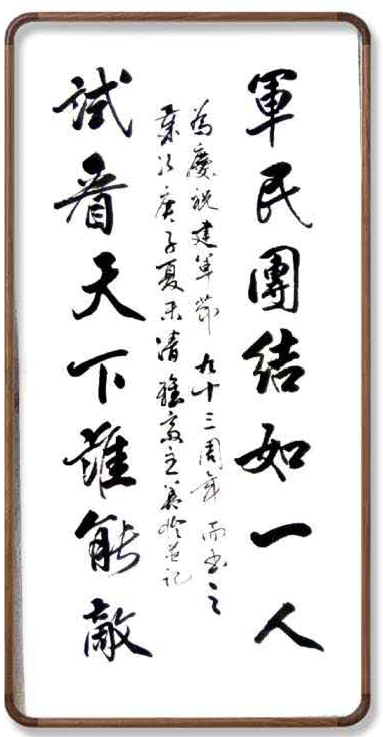 軍民團結如一人
為慶祝建軍節九十三周年而書之
庚子夏末清雅齋主並記
試看天下誰能敵